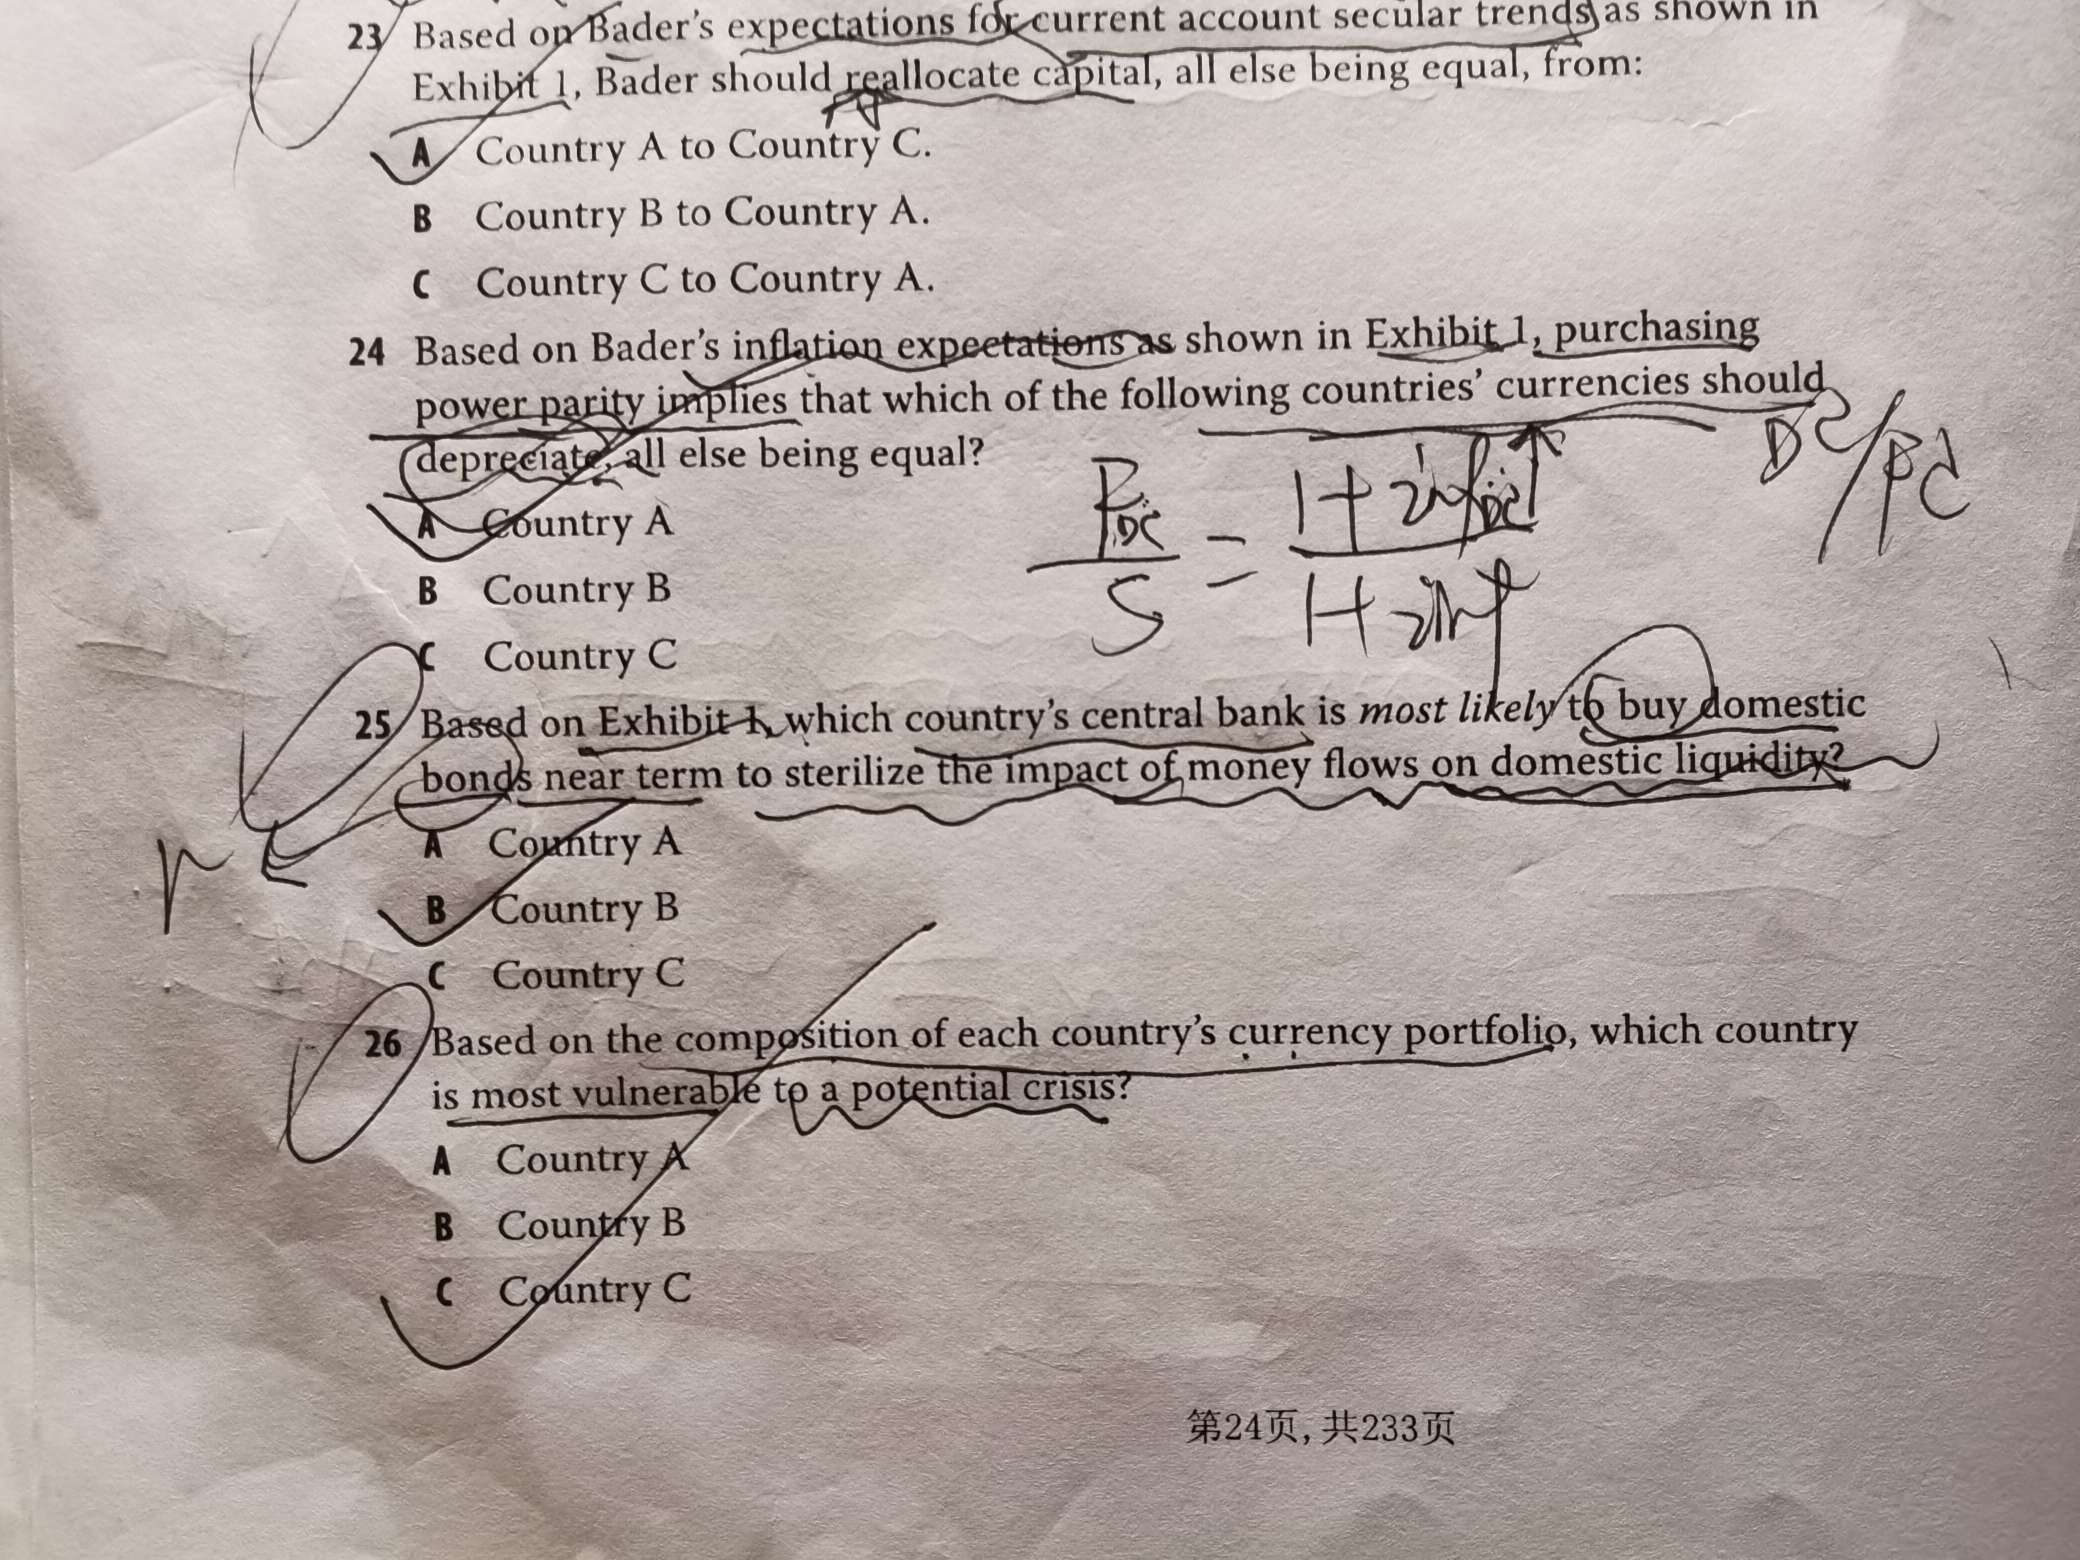 23 Based on Bader's expectations for current account secular trends as shown in
Exhibit 1, Bader should reallocate capital, all else being equal, from:
A Country A to Country C.
B Country B to Country A.
C Country C to Country A.
24 Based on Bader's inflation expectations as shown in Exhibit 1, purchasing
power parity implies that which of the following countries' currencies should
depreciate, all else being equal?
A Country A
B Country B
C Country C
25 Based on Exhibit 1, which country's central bank is most likely to buy domestic
bonds near term to sterilize the impact of money flows on domestic liquidity?
A Country A
B Country B
C Country C
26 Based on the composition of each country's currency portfolio, which country
is most vulnerable to a potential crisis?
A Country A
B Country B
C Country C
第24页, 共233页